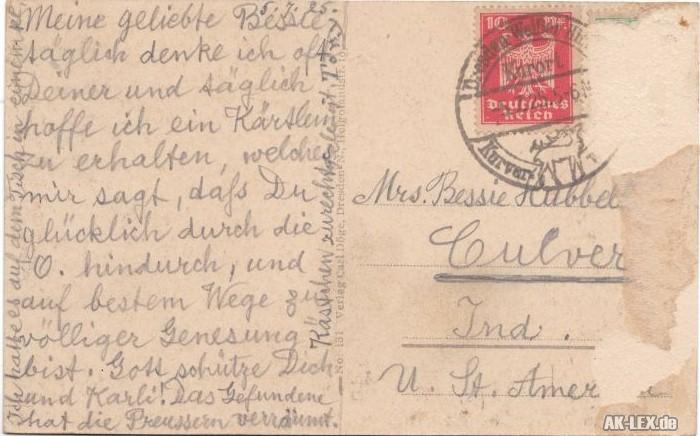 Meine geliebte Bessie
5.7.25.
täglich denke ich oft
Deiner und täglich
hoffe ich ein Kärtlein
zu erhalten, welches
mir sagt, daſs Du
glücklich durch die
O. hindurch, und
auf bestem Wege zu
völliger Genesung
bist. Gott schütze Dich
und Karli! Das Gefundene
hat die Preussern verräumt.
Ich hatte es auf dem Tisch in einem
Kästchen zurechtgelegt.
No. 151 Verlag Carl Döge, Dresden-N.
10 Pf.
Deutsches
Reich
Dresden
Mrs. Bessie Hubbel
Culver
Ind.
U. St. Amer
AK-LEX.de